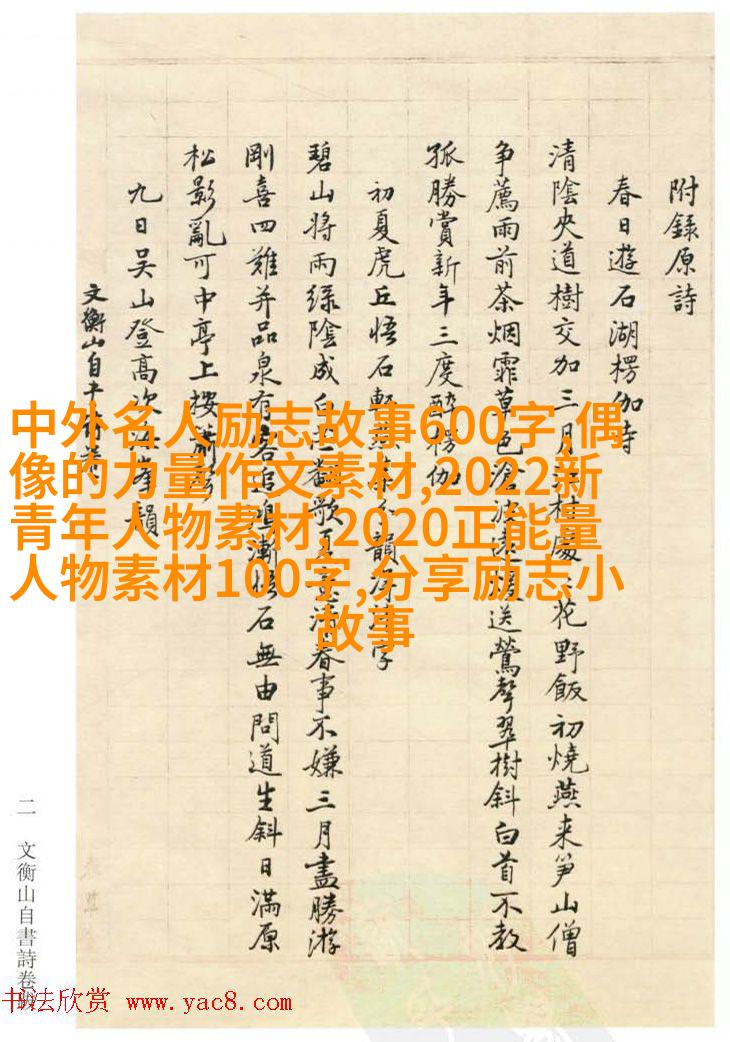 附錄原詩
春日遊石湖楞伽寺
清陰央道樹交加三月村慶花野飯初燒燕来笋山僧
争薦雨前茶烟霏草色滄波遠送鶯聲翠樹斜白首不教
孤勝賞新年三度醉楞伽
初夏虎丘悟石軒燕集分韻字
碧山將雨緑陰成白翻歌清春事不嫌三月盡勝游
剛喜四難并品泉有客追鴻漸悟石無由問道生斜日滿原
松影亂可中亭上按
九日吴山登高次峯韻
文衡山自
二 文衡山自書詩卷跋
中外名人励志故事600字,偶
像的力量作文素材,2022新
青年人物素材,2020正能量
人物素材100字,分享励志小
故事
书法欣赏 www.yac8.com